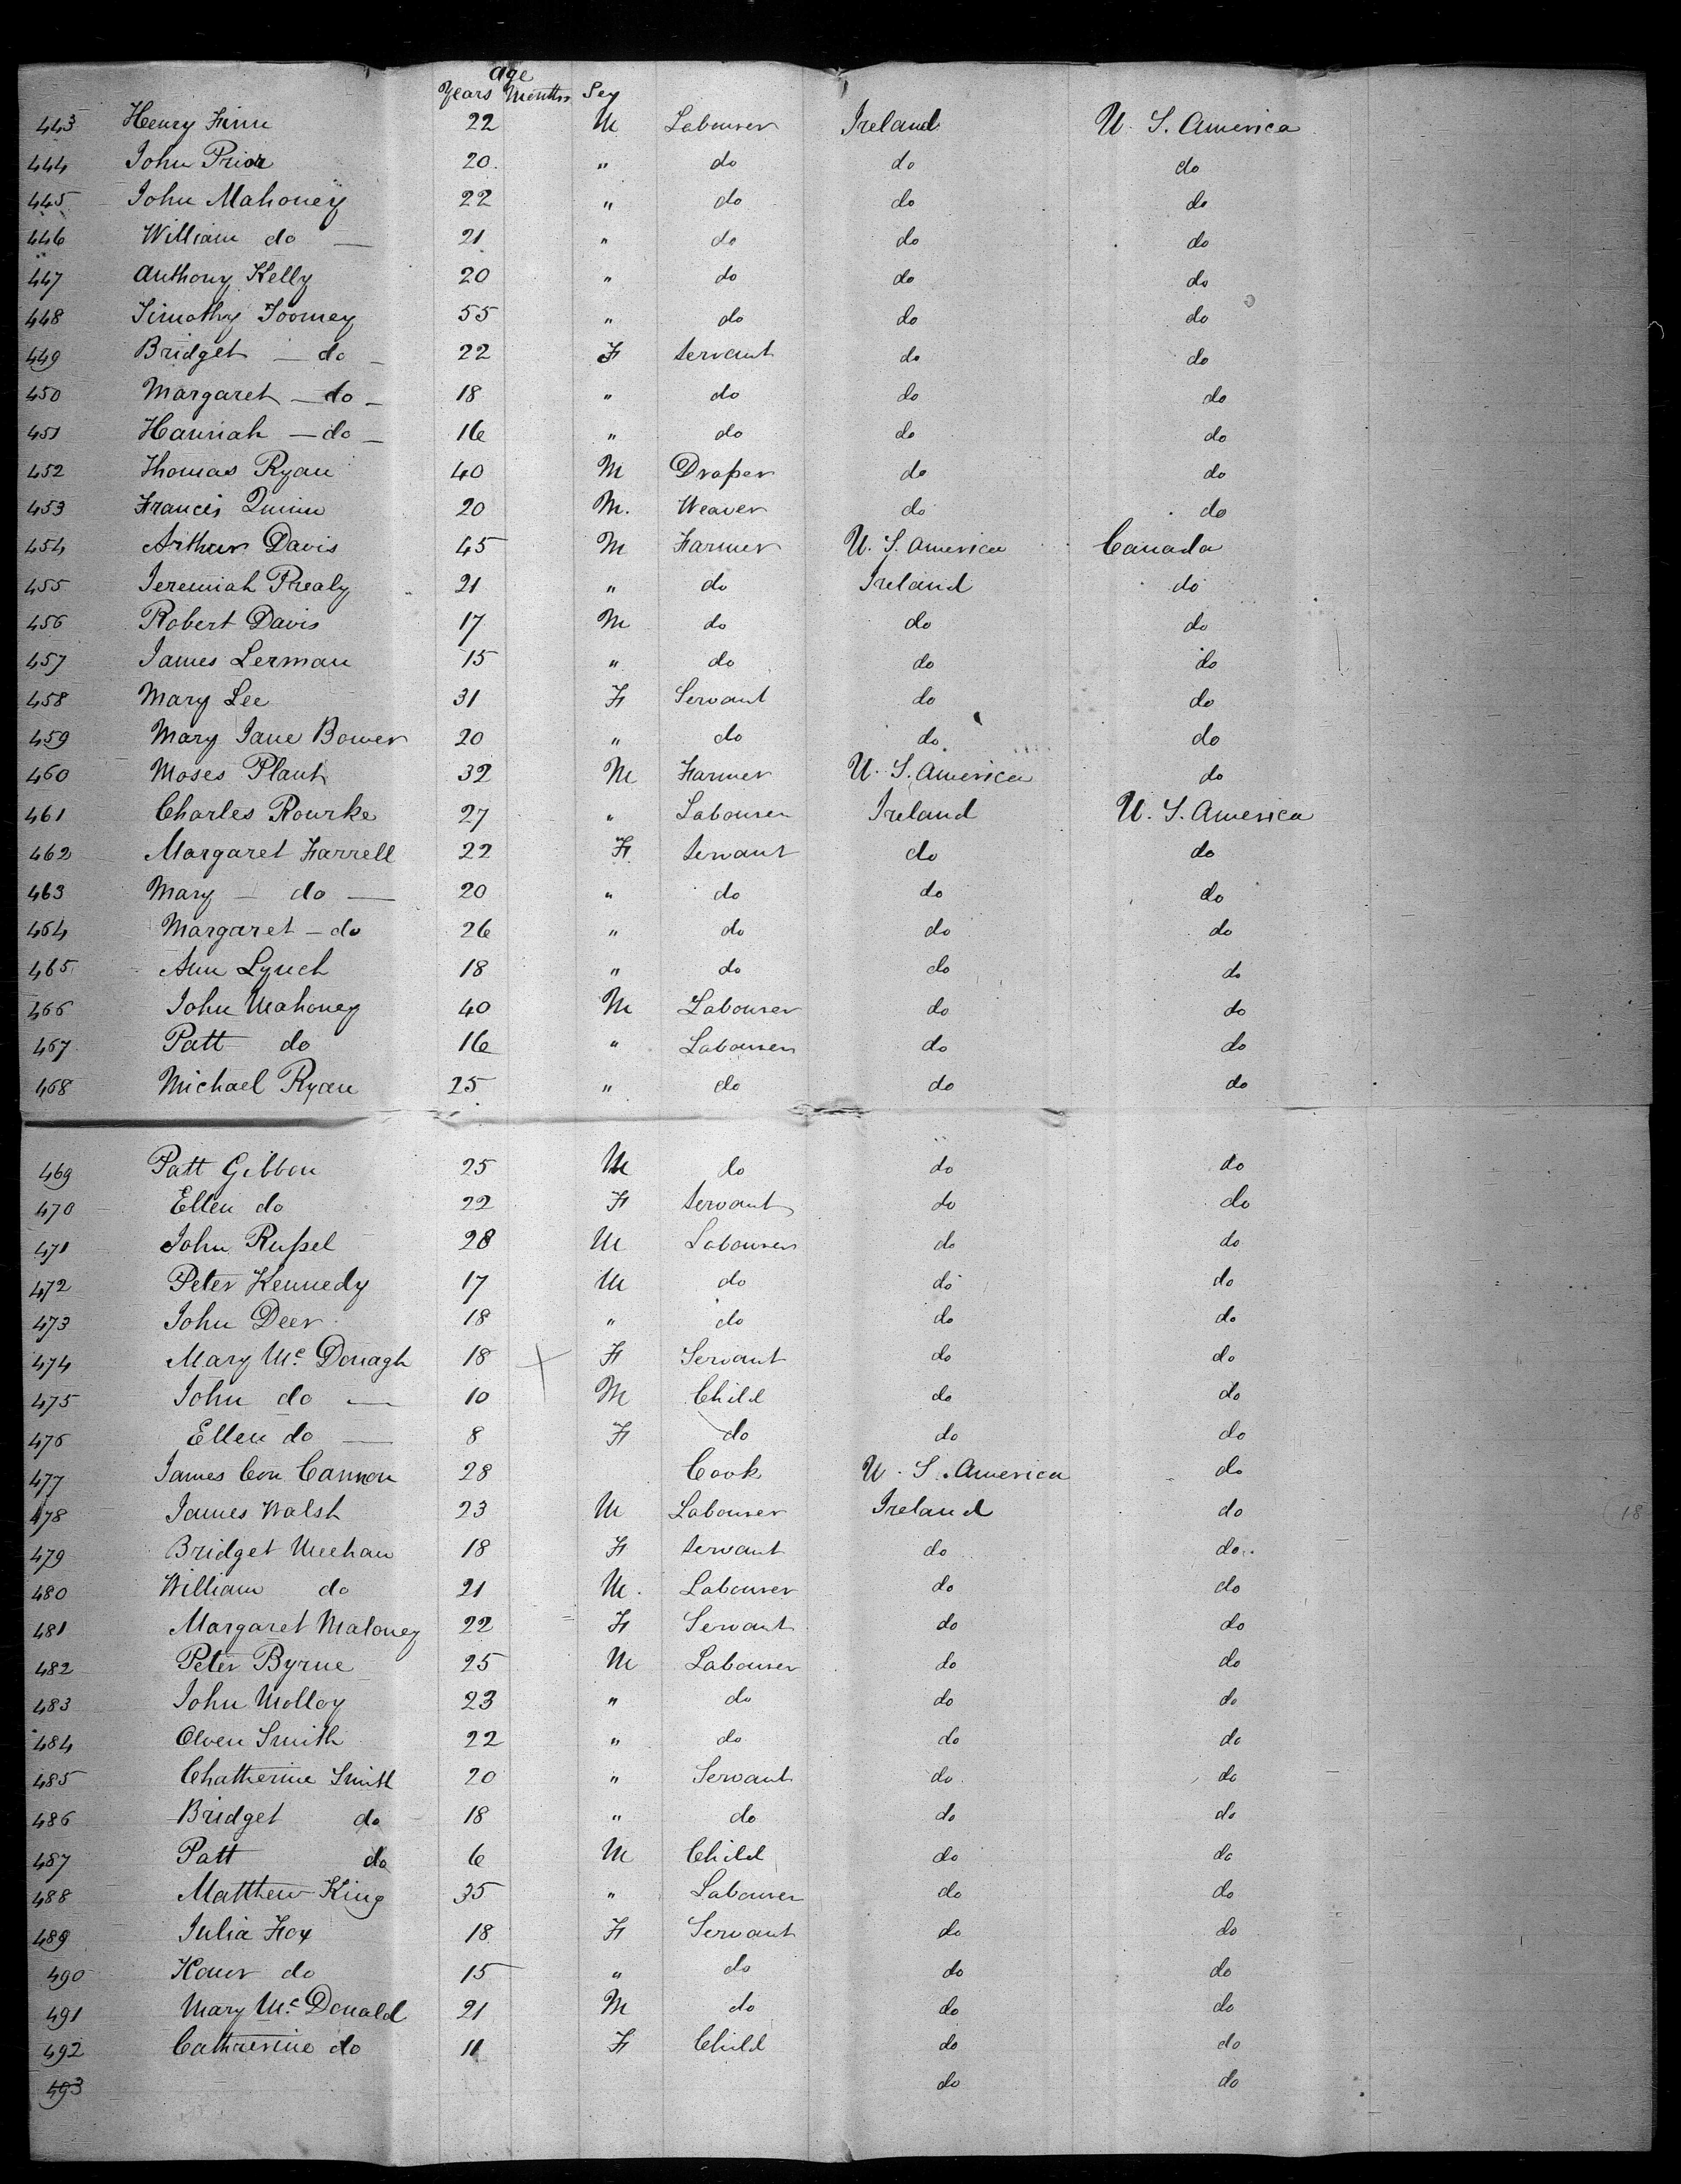 age
Years Months Sex
443 Henry Finn 22 M Labourer Ireland U. S. America
444 John Prior 20 " do do do
445 John Mahoney 22 " do do do
446 William do — 21 " do do do
447 Anthony Kelly 20 " do do do
448 Timothy Toomey 55 " do do do
449 Bridget — do — 22 F Servant do do
450 Margaret — do — 18 " do do do
451 Hannah — do — 16 " do do do
452 Thomas Ryan 40 M Draper do do
453 Francis Quinn 20 M. Weaver do do
454 Arthur Davis 45 M Farmer U. S. America Canada
455 Jeremiah Prealy 21 " do Ireland do
456 Robert Davis 17 M do do do
457 James Lerman 15 " do do do
458 Mary Lee 31 F Servant do do
459 Mary Jane Bower 20 " do do do
460 Moses Plant 32 M Farmer U. S. America do
461 Charles Rourke 27 " Labourer Ireland U. S. America
462 Margaret Farrell 22 F Servant do do
463 Mary — do — 20 " do do do
464 Margaret — do 26 " do do do
465 Ann Lynch 18 " do do do
466 John Mahoney 40 M Labourer do do
467 Patt do 16 " Labourer do do
468 Michael Ryan 25 " do do do
469 Patt Gibbon 25 M do do do
470 Ellen do 22 F Servant do do
471 John Rufsel 28 M Labourer do do
472 Peter Kennedy 17 M do do do
473 John Deer 18 " do do do
474 Mary Mc Donagh 18 F Servant do do
475 John do — 10 M Child do do
476 Ellen do — 8 F do do do
477 James Con Cannon 28 Cook U. S. America do
478 James Walsh 23 M Labourer Ireland do
479 Bridget Meehan 18 F Servant do do
480 William do 21 M. Labourer do do
481 Margaret Maloney 22 F Servant do do
482 Peter Byrne 25 M Labourer do do
483 John Molloy 23 " do do do
484 Owen Smith 22 " do do do
485 Chatherine Smith 20 " Servant do do
486 Bridget do 18 " do do do
487 Patt do 6 M Child do do
488 Matthew King 35 " Labourer do do
489 Julia Fox 18 F Servant do do
490 do 15 " do do do
491 Mary Mc Donald 21 M do do do
492 Catherine do 11 F Child do do
493 do do
18